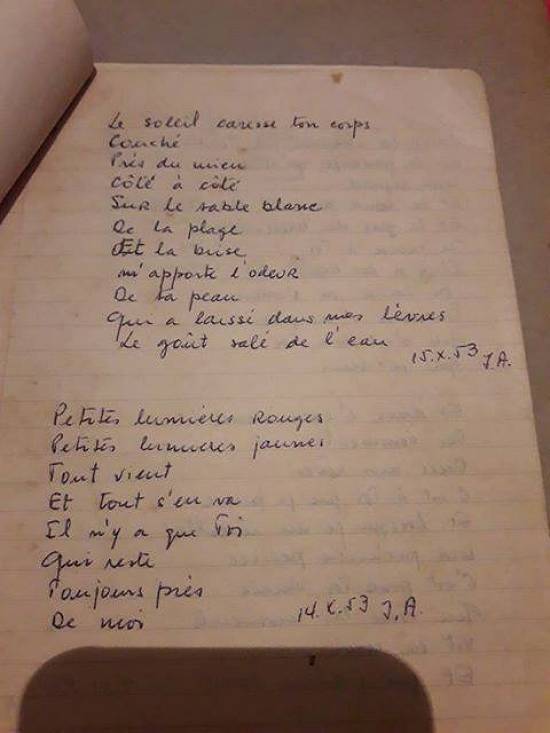 Le soleil caresse ton corps
Couché
Près du mien
Côté à côté
Sur le sable blanc
De la plage
Et la brise
m'apporte l'odeur
De ta peau
Qui a laissé dans mes lèvres
Le goût salé de l'eau
15.X.53 J.A.
Petites lumières Rouges
Petites lumières jaunes
Tout vient
Et tout s'en va
Il n'y a que Toi
Qui reste
Toujours près
De moi
14.X.53 J.A.